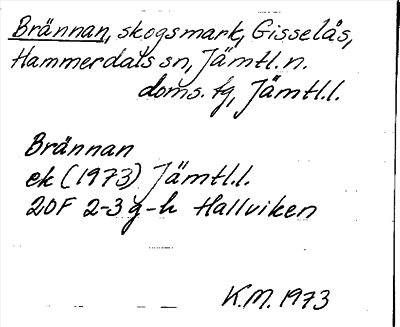 Brännan, skogsmark, Gisselås,
Hammerdals sn, Jämtl. n.
doms. fg, Jämtl.l.
Brännan
ek (1973) Jämtl.l.
20F 2-3 g-h Hallviken
K.M. 1973